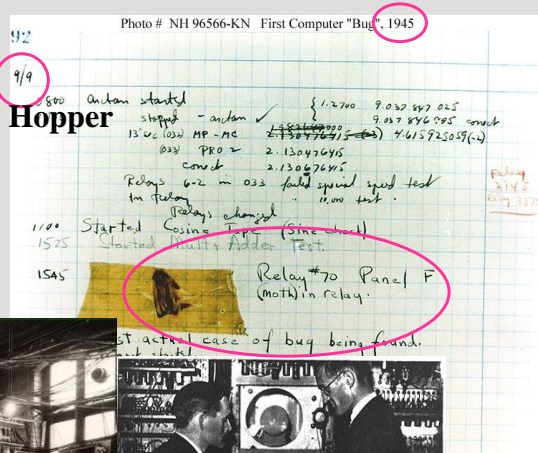 Photo # NH 96566-KN First Computer "Bug", 1945
92
9/9
0800 Antan started
{ 1.2700 9.037 847 025
stopped - antan ✓ 9.037 846 995 conect
Hopper
13" uc (032) MP - MC 4.615925059(-2)
(033) PRO 2 2.130476415
conect 2.130676415
Relays 6-2 in 033 failed special speed test
In Relay 10,000 test.
Relays changed
1100 Started Cosine Tape (Sine check)
1525 Started Mult + Adder Test.
1545 Relay #70 Panel F
(moth) in relay.
st actual case of bug being found.